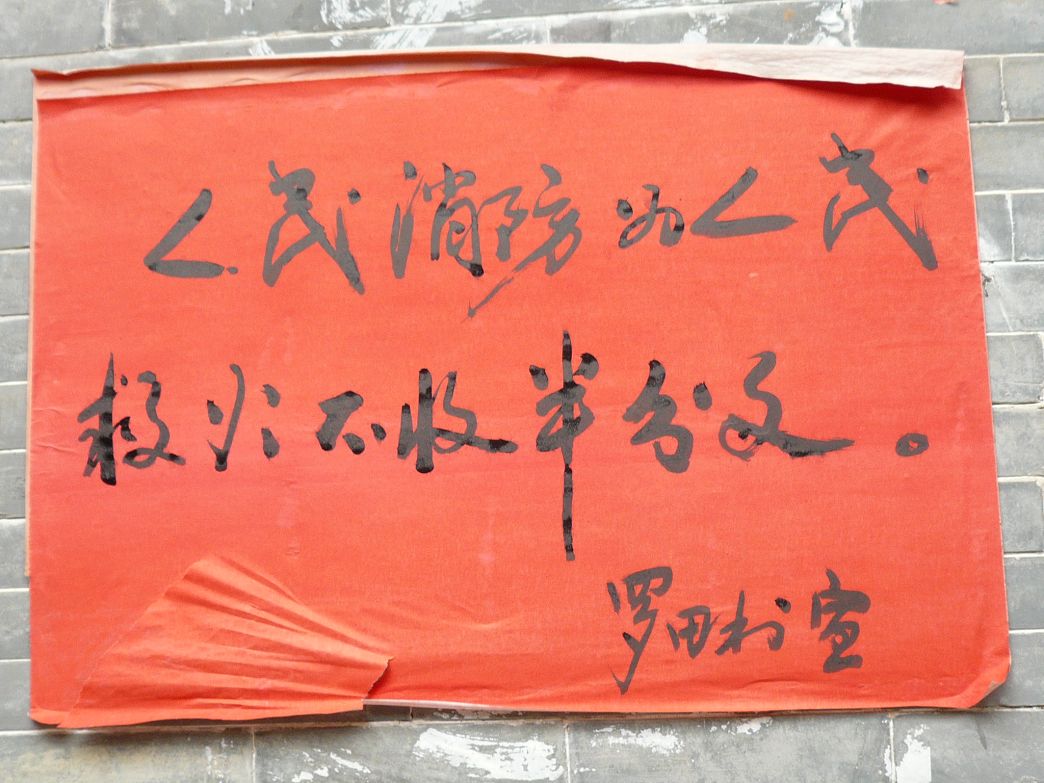 人民消防为人民
救火不收半分文。
罗田村宣